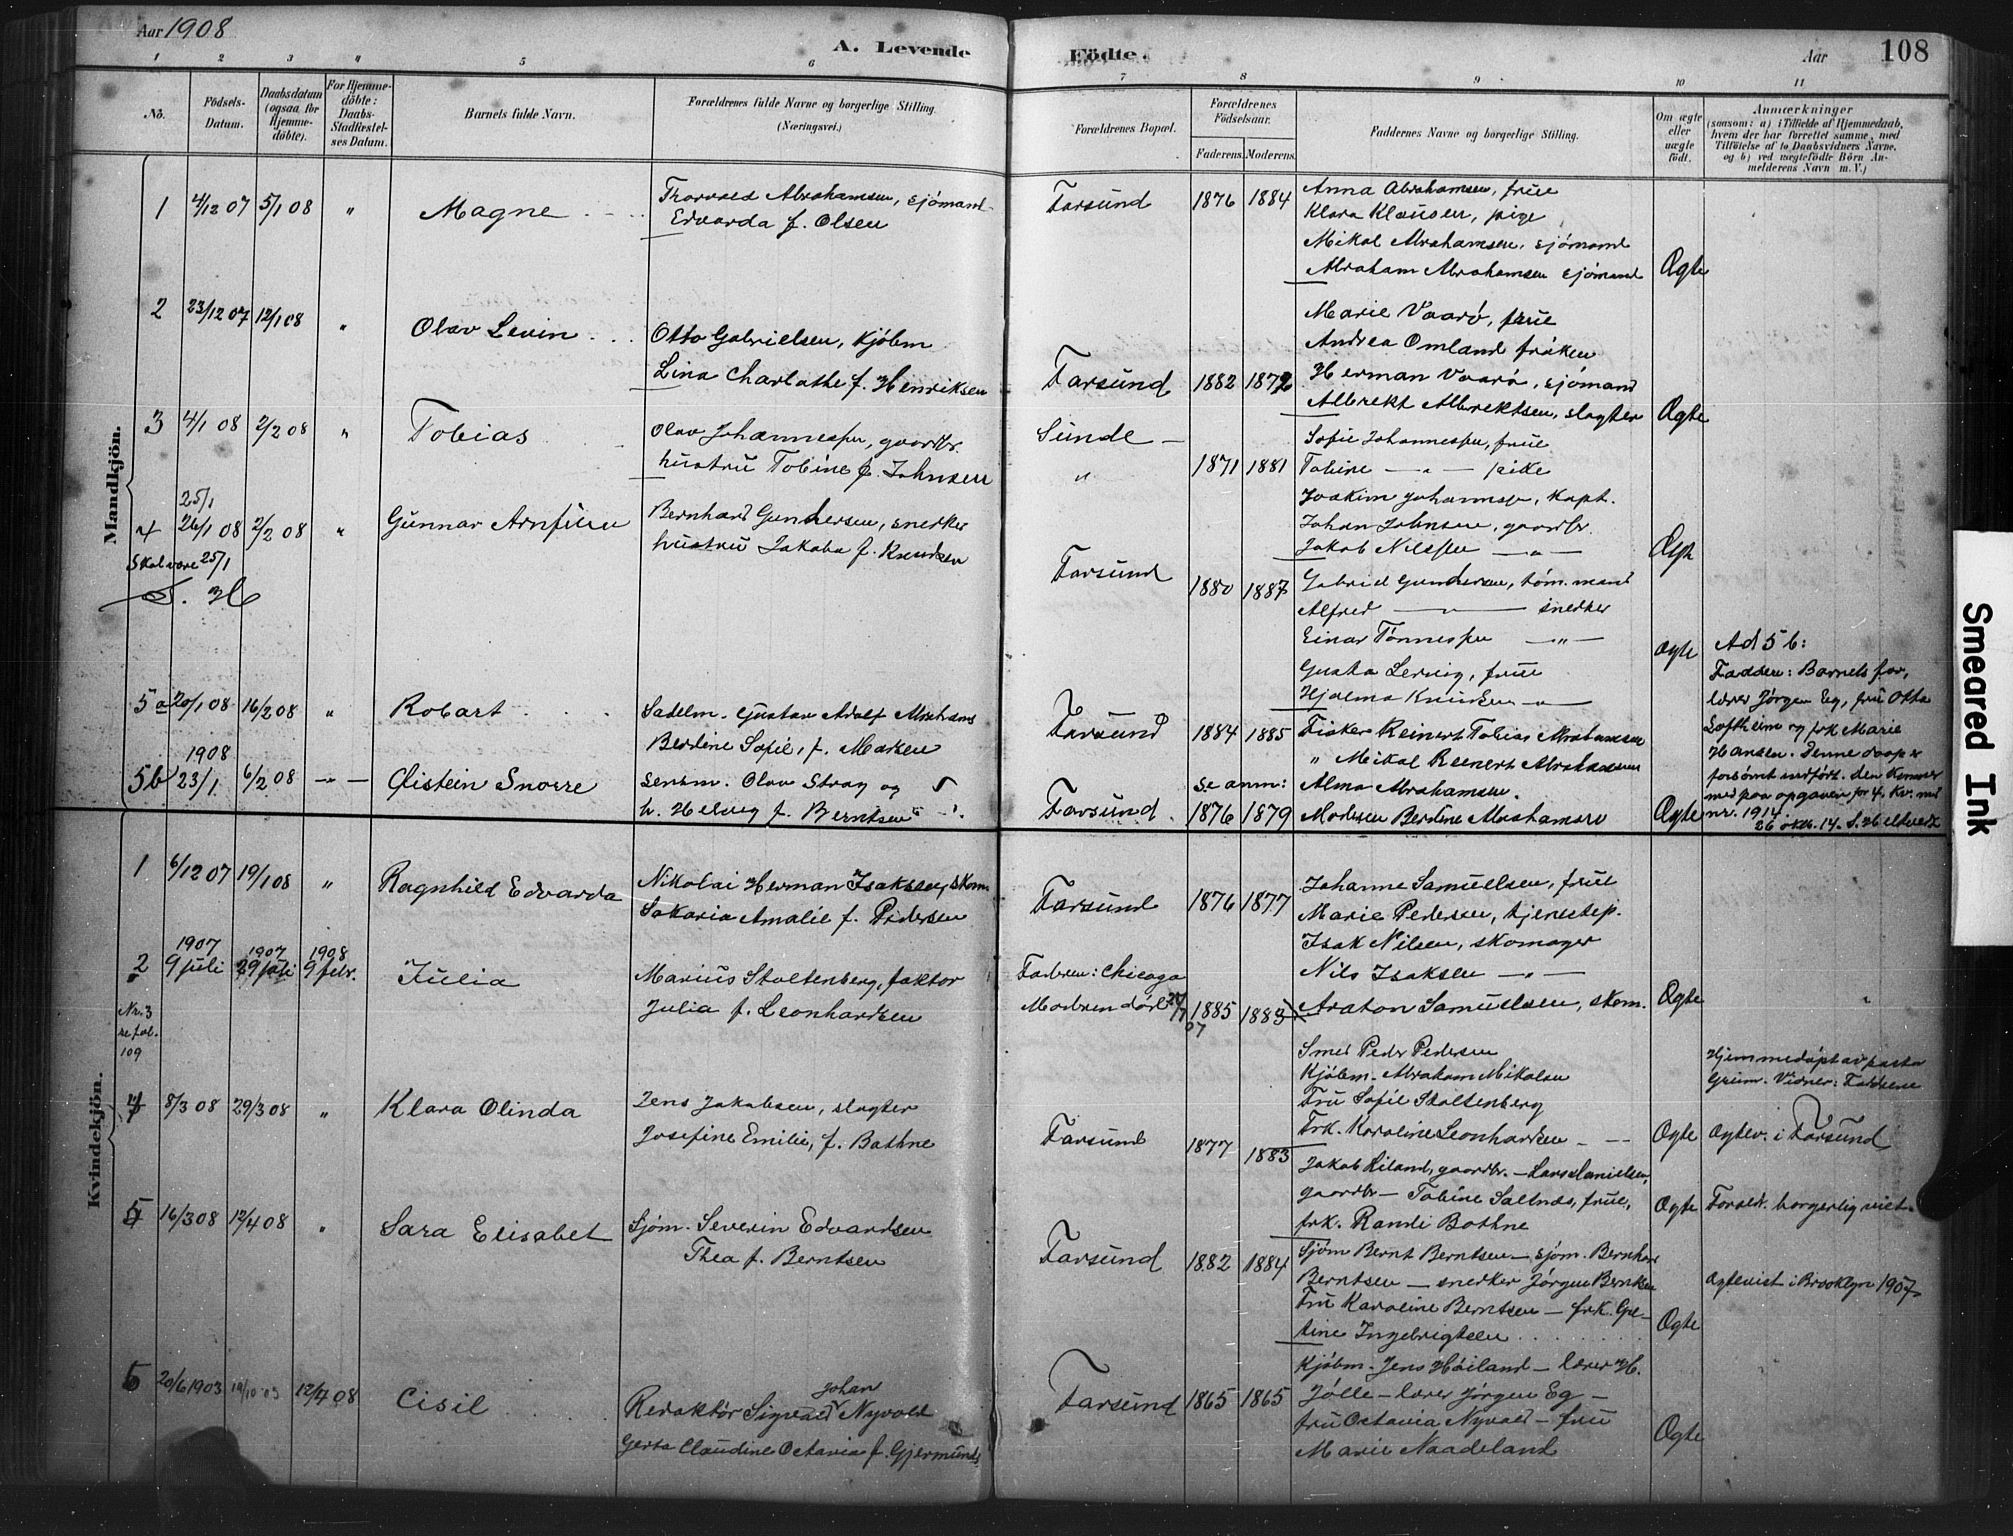 Aar 1908
A. Levende
Födte.
Aar
108
1 2 3 4 5 6 7 8 9 10 11
No.
Födsels-
Datum.
Daabsdatum
(ogsaa for
Hjemme-
döbte).
For Hjemme-
döbte:
Daabs-
Stadfæstel-
ses Datum.
Barnets fulde Navn.
Forældrenes fulde Navne og borgerlige Stilling.
(Næringsvei.)
Forældrenes Bopæl.
Forældrenes
Födselsaar.
Faderens. Moderens.
Faddernes Navne og borgerlige Stilling.
Om ægte
eller
uægte
født.
Anmærkninger
(saasom: a) i Tilfælde af Hjemmedaab,
hvem der har forrettet samme, med
Tilföielse af to Daabsvidners Navne.
og b) ved uægtefödte Börn An-
melderens Navn m. V.)
Mandkjön.
1 4/12 07 5/1 08 " Magne
Thorvald Abrahamsen, sjømand
Edvarda f. Olsen
Farsund 1876 1884
Anna Abrahamsen, frue
Klara Klausen, pige
Mikal Abrahamsen, sjømand
Abraham Abrahamsen sjømand
Ægte
2 23/12 07 12/1 08 " Olav Levin
Otto Gabrielsen, Kjøbm
Lina Charlothe f. Henriksen
Farsund 1882 1872
Marie Vaarø, frue
Andrea Omland frøken
Herman Vaarø, sjømand
Albrekt Albrektsen, slagter
Ægte
3 4/1 08 2/2 08 " Tobias
Olav Johannessen, gaardbr.
hustru Tobine f. Johnsen
Sunde
"
1871 1881
Sofie Johannessen, frue
Tobine — " — pike
Joakim Johannesse, Kapt.
Johan Johnsen, gaardbr.
Jakob Nilssen — " —
Ægte
25/1
4 26/1 08 2/2 08 " Gunnar Arnfinn
Skal være 25/1
S. H
Bernhard Gundersen, snedker
hustru Jakoba f. Knudsen
Farsund 1880 1887
Gabriel Gundersen, tøm. mand
Alfred — " — snedker
Einar Tønnessen — " —
Gusta Lervig, frue
Hjalma Knudsen — " —
Ægte
5a 20/1 08 16/2 08 " Robart
Sadelm. Gustav Adolf Abrahams
Berdine Sofie, f. Marsen
Farsund 1884 1885
Fisker Reinert Tobias Abrahamsen
" Mikal Reinert Abrahamsen
Alma Abrahamsen.
Moderen Berdine Abrahamsen
Ægte
1908
5b 23/1 6/2 08 — " — Øistein Snorre
Sensm. Olav Stray og
h. Helvig f. Berntsen
Farsund 1876 1879
se anm:
Ad 5 b:
Faddere: Barnets far,
lærer Jørgen Eg, fru Otta
Loftheim og frk Marie
Hansen. Denne daap er
forsømt indført. Den kommer
med paa opgaven for 4. Kv. med
nr. 1914
26 okt. 14. S. Heltvedt
Kvindekjön.
1 6/12 07 19/1 08 " Ragnhild Edvarda
Nikolai Herman Isaksen, skom
Sakaria Amalie f. Pedersen
Farsund 1876 1877
Johanne Samuelsen, frue
Marie Pedersen, tjenestep.
Isak Nilsen, skomager
Nils Isaksen — " —
Araton Samuelsen, skom.
Ægte
1907 1907 1908
2 9 juli 29 juli 9 febr. Julia
Marius Stoltenberg, faktor
Julia f. Leonhardsen
Faderen: Chicago
Moderen død 24/7 07
1885 1883
Smed Peder Pedersen
Kjøbm. Abraham Mikalsen
Fru Sofie Stoltenberg
Frk. Karoline Leonhardsen
Ægte
Hjemmedøpt av pastor
Greim. Vidner: Fadrene
Nr. 3
se fol.
109
4 8/3 08 29/3 08 " Klara Olinda
Jens Jakobsen, slagter
Josefine Emilie, f. Bothne
Farsund 1877 1883
Jakob Liland, gaardbr. — Lars Danielsen,
gaardbr — Tobine Saltnæs, frue,
frk. Randi Bothne
Ægte
Ægtev. i Farsund
5 16/3 08 12/4 08 " Sara Elisabet
Sjøm. Severin Edvardsen
Thea f. Berntsen
Farsund 1882 1884
Sjøm Bernt Berntsen — sjøm. Bernhard
Berntsen — snedker Jørgen Berntsen
Fru Karoline Berntsen — frk. Gre-
tine Ingebrigtsen
Ægte
Foræld. borgerlig viet.
Ægteviet i Brooklyn 1907
6 20/6 1903 12/4 08 Cisil
Redaktør Sigvald Johan Nyvold
Gerta Claudine Octavia f. Gjermunds
Farsund 1865 1865
Kjøbm. Jens Høiland — lærer H.
Jølle — lærer Jørgen Eg —
fru Octavia Nyvold — frue
Marie Naadeland
Ægte
Smeared Ink